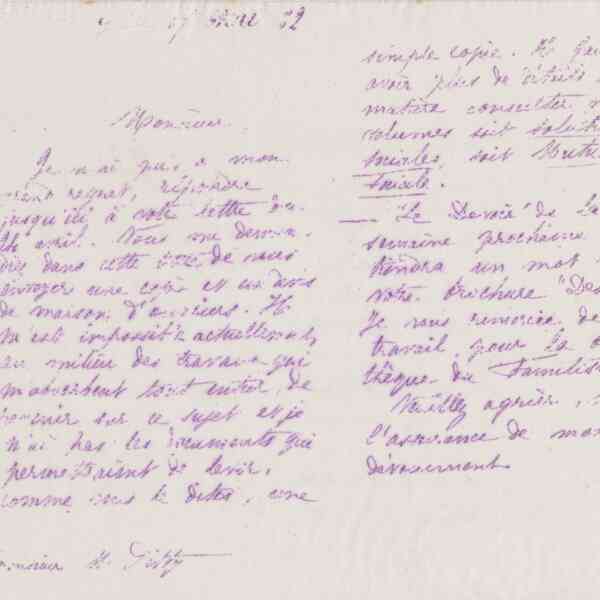 82
Monsieur
Je n'ai pu, à mon
grand regret, répondre
jusqu'ici à votre lettre du
avril. Vous me deman-
diez dans cette de vous
envoyer une copie et un devis
de maison d'ouvriers. Il
m'est impossible actuellement,
au milieu des travaux qui
m'absorbent tout entier, de
revenir sur ce sujet et je
n'ai pas les documents qui
permettraient de
comme vous le dites, une
Monsieur
simple copie.
avoir plus de
matière consulter
volumes soit Solutions
sociales, soit
sociale.
— "Le Devoir" de la
semaine prochaine
tiendra un mot
votre brochure "Des
Je vous remercie de
travail, pour la
thèque du Familis
Veuillez agréer,
l'assurance de mon
dévouement